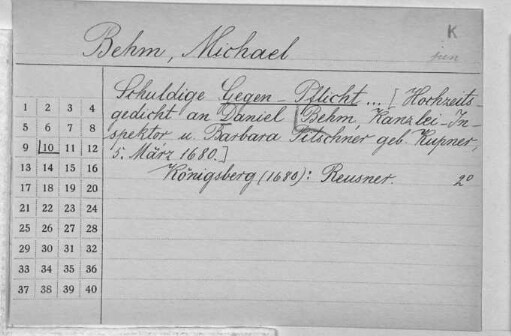 K
Behm, Michael
Schuldige Gegen-Pflicht ... [Hochzeits-
gedicht an Daniel Behm Kanzlei-In-
spektor u. Barbara Pitschner geb. Kupner,
5. März 1680.]
Königsberg (1680): Reusner. 2°
1 2 3 4
5 6 7 8
9 10 11 12
13 14 15 16
17 18 19 20
21 22 23 24
25 26 27 28
29 30 31 32
33 34 35 36
37 38 39 40